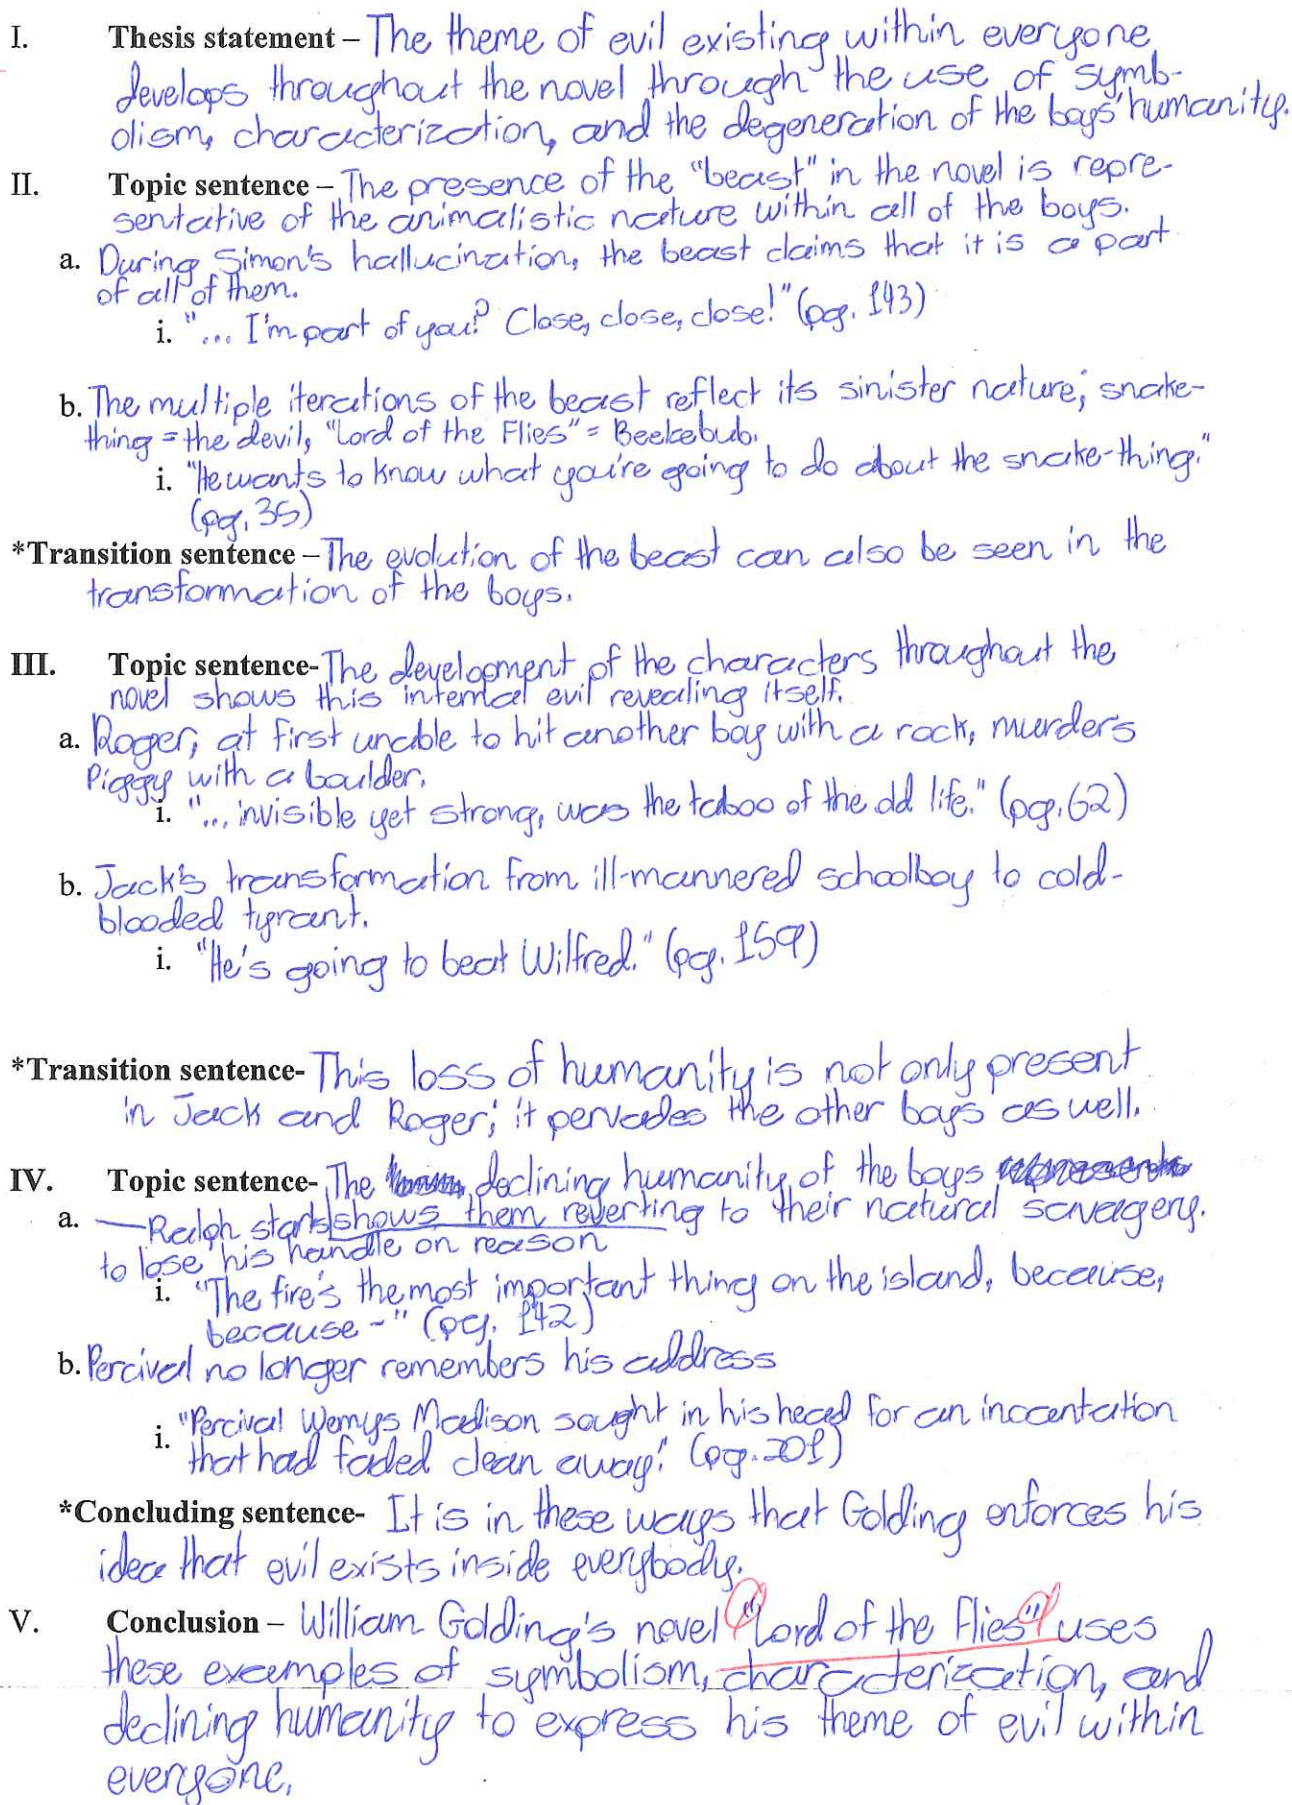 I. Thesis statement – The theme of evil existing within everyone
develops throughout the novel through the use of symb-
olism, characterization, and the degeneration of the boys' humanity.
II. Topic sentence – The presence of the "beast" in the novel is repre-
sentative of the animalistic nature within all of the boys.
a. During Simon's hallucination, the beast claims that it is a part
of all of them.
i. "... I'm part of you? Close, close, close!" (pg. 143)
b. The multiple iterations of the beast reflect its sinister nature; snake-
thing = the devil, "Lord of the Flies" = Beelzebub.
i. "He wants to know what you're going to do about the snake-thing."
(pg. 35)
*Transition sentence – The evolution of the beast can also be seen in the
transformation of the boys.
III. Topic sentence- The development of the characters throughout the
novel shows this internal evil revealing itself.
a. Roger, at first unable to hit another boy with a rock, murders
Piggy with a boulder.
i. "... invisible yet strong, was the taboo of the old life." (pg. 62)
b. Jack's transformation from ill-mannered schoolboy to cold-
blooded tyrant.
i. "He's going to beat Wilfred." (pg. 159)
*Transition sentence- This loss of humanity is not only present
in Jack and Roger; it pervades the other boys as well.
IV. Topic sentence- The declining humanity of the boys
shows them reverting to their natural savagery.
a. — Ralph starts
to lose his handle on reason
i. "The fire's the most important thing on the island, because,
because -" (pg. 142)
b. Percival no longer remembers his address
i. "Percival Wemys Madison sought in his head for an incantation
that had faded clean away." (pg. 201)
*Concluding sentence- It is in these ways that Golding enforces his
idea that evil exists inside everybody.
V. Conclusion – William Golding's novel "Lord of the Flies" uses
these examples of symbolism, characterization, and
declining humanity to express his theme of evil within
everyone.